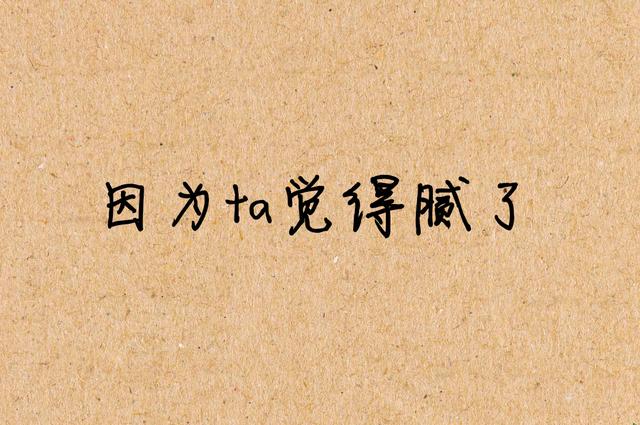 因为ta觉得腻了